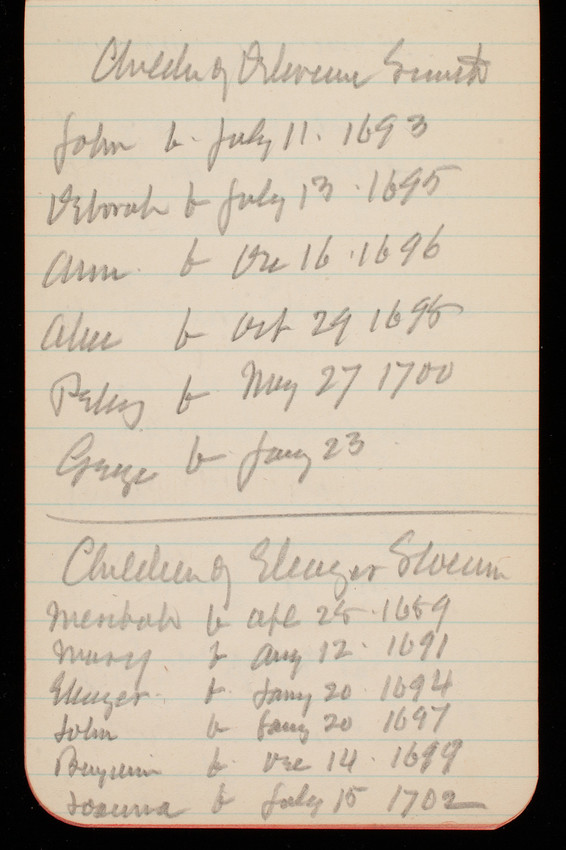 Children of Smith
John b. July 11. 1693
Deborah b July 13. 1695
Ann. b Dec 16. 1696
Alice b Oct 29 1698
Peleg b May 27 1700
George b Jany 23
Children of Eleazer Slocum
Meribah b Apl 25. 1689
Mary. b Aug 12. 1691
Eleazer. b. Jany 20. 1694
John b Jany 20 1697
Benjamin b. Dec 14. 1699
Joanna b July 15 1702